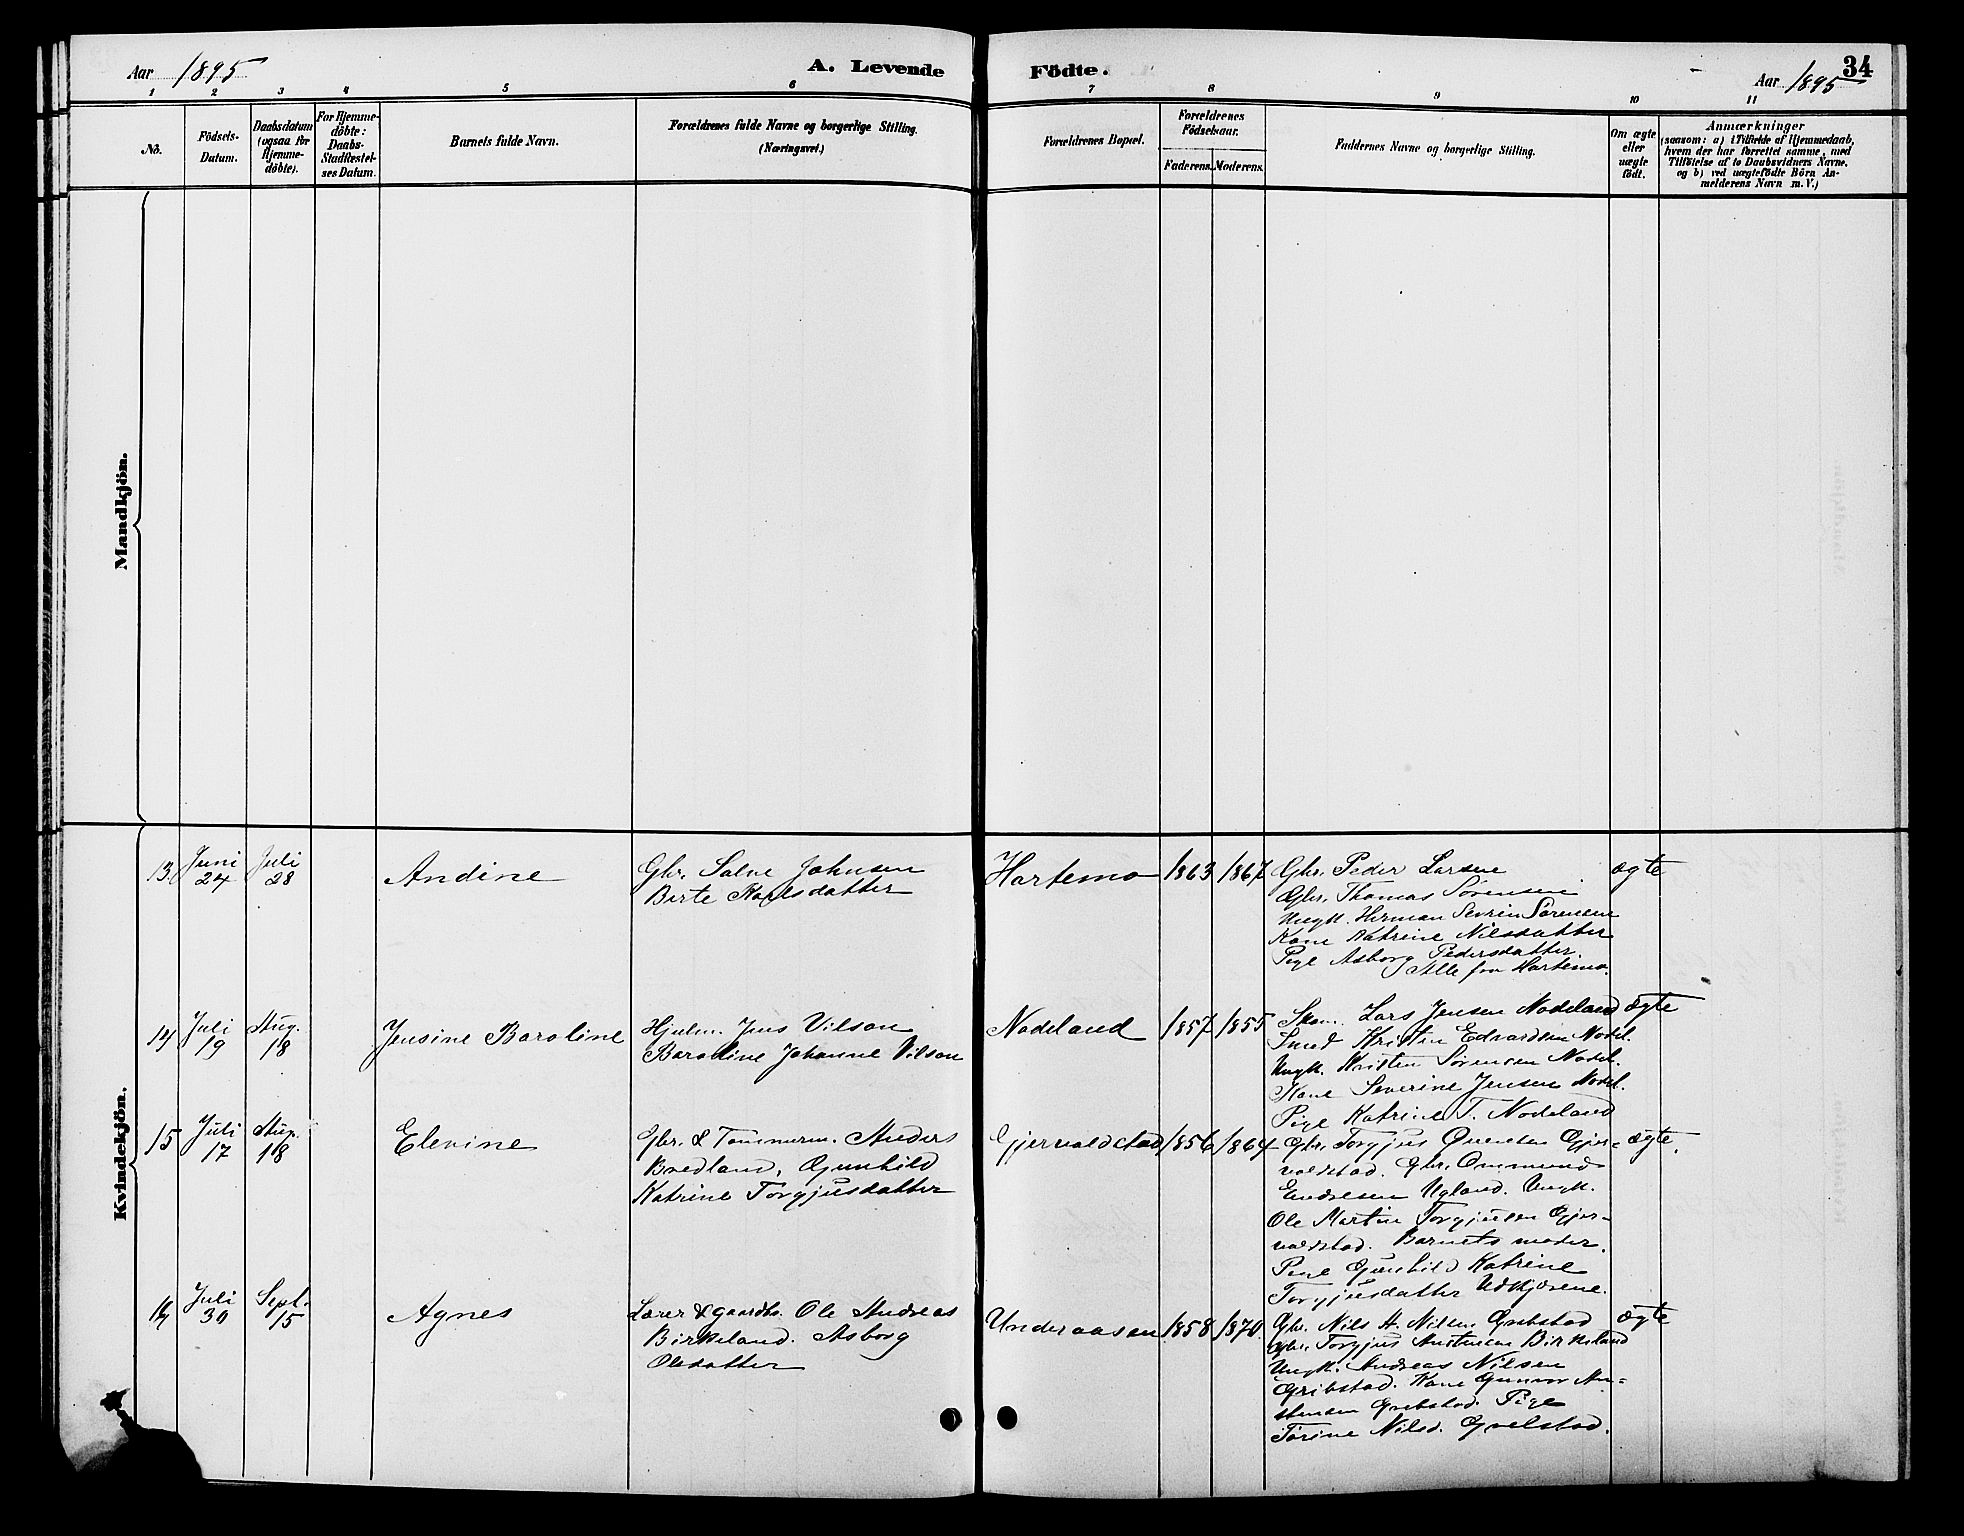 Aar 1895
A. Levende
Födte.
34
Aar 1895
1 2 3 4 5 6 7 8 9 10 11
No.
Födsels-
Datum.
Daabsdatum
(ogsaa for
Hjemme-
döbte).
For Hjemme-
döbte:
Daabs-
Stadfæstel-
ses Datum.
Barnets fulde Navn.
Forældrenes fulde Navne og borgerlige Stilling.
(Næringsvei.)
Forældrenes Bopæl.
Forældrenes
Födselsaar.
Faderens. Moderens.
Faddernes Navne og borgerlige Stilling.
Om ægte
eller
uægte
født.
Anmærkninger
(saasom: a) i Tilfælde af Hjemmedaab,
hvem der har forrettet samme, med
Tilföielse af to Daabsvidners Navne,
og b) ved uægtefödte Börn An-
melderens Navn m. V.)
Mandkjön.
Kvindekjön.
13.
Juni
24
Juli
28
Andine
Gbr. Salve Johnsen
Berte Karlsdatter
Hortemo
1863 1867
Gbr. Peder Larsen
Gbr. Thomas Sørensen
Ungk. Herman Sevrin Sørensen
Kone Katrine Nilsdatter
Pige Asborg Pedersdatter.
Alle fra Hortemo.
ægte
14
Juli
19
Aug.
18
Jensine Baroline
Hjulm. Jens Vilson
Baroline Johanne Vilson
Nodeland
1857 1855
Skom. Lars Jensen Nodeland
Smed Kristen Edvardsen Nodel.
Ungk. Kristen Sørensen Nodel.
Kone Severine Jensen Nodel.
Pige Katrine T. Nodeland
ægte
15
Juli
17
Aug.
18
Elevine
Gbr. & Tømmerm. Anders
Bredland, Gunhild
Katrine Torgjusdatter
Gjervaldstad
1856 1864
Gbr. Torgjus Gjer-
valdstad. Gbr. Ommund
Endresen Ugland. Ungk.
Ole Martin Torgjusen Gjer-
valdstad. Barnets moder.
Pige Gunhild Katrine
Torgjusdatter Udkjærene.
ægte.
Juli
30
Sept.
15
Agnes
Lærer & gaardbr. Ole Andreas
Birkeland. Asborg
Olsdatter
Underaasen
1858 1870.
Gbr. Nils A. Nilsen Grebstad
Gbr. Torgjus Austensen Birkeland
Ungk. Andreas Nilsen
Gribstad. Kone Gunvor Au-
stensen Grebstad. Pige
Torine Nilsd.
ægte